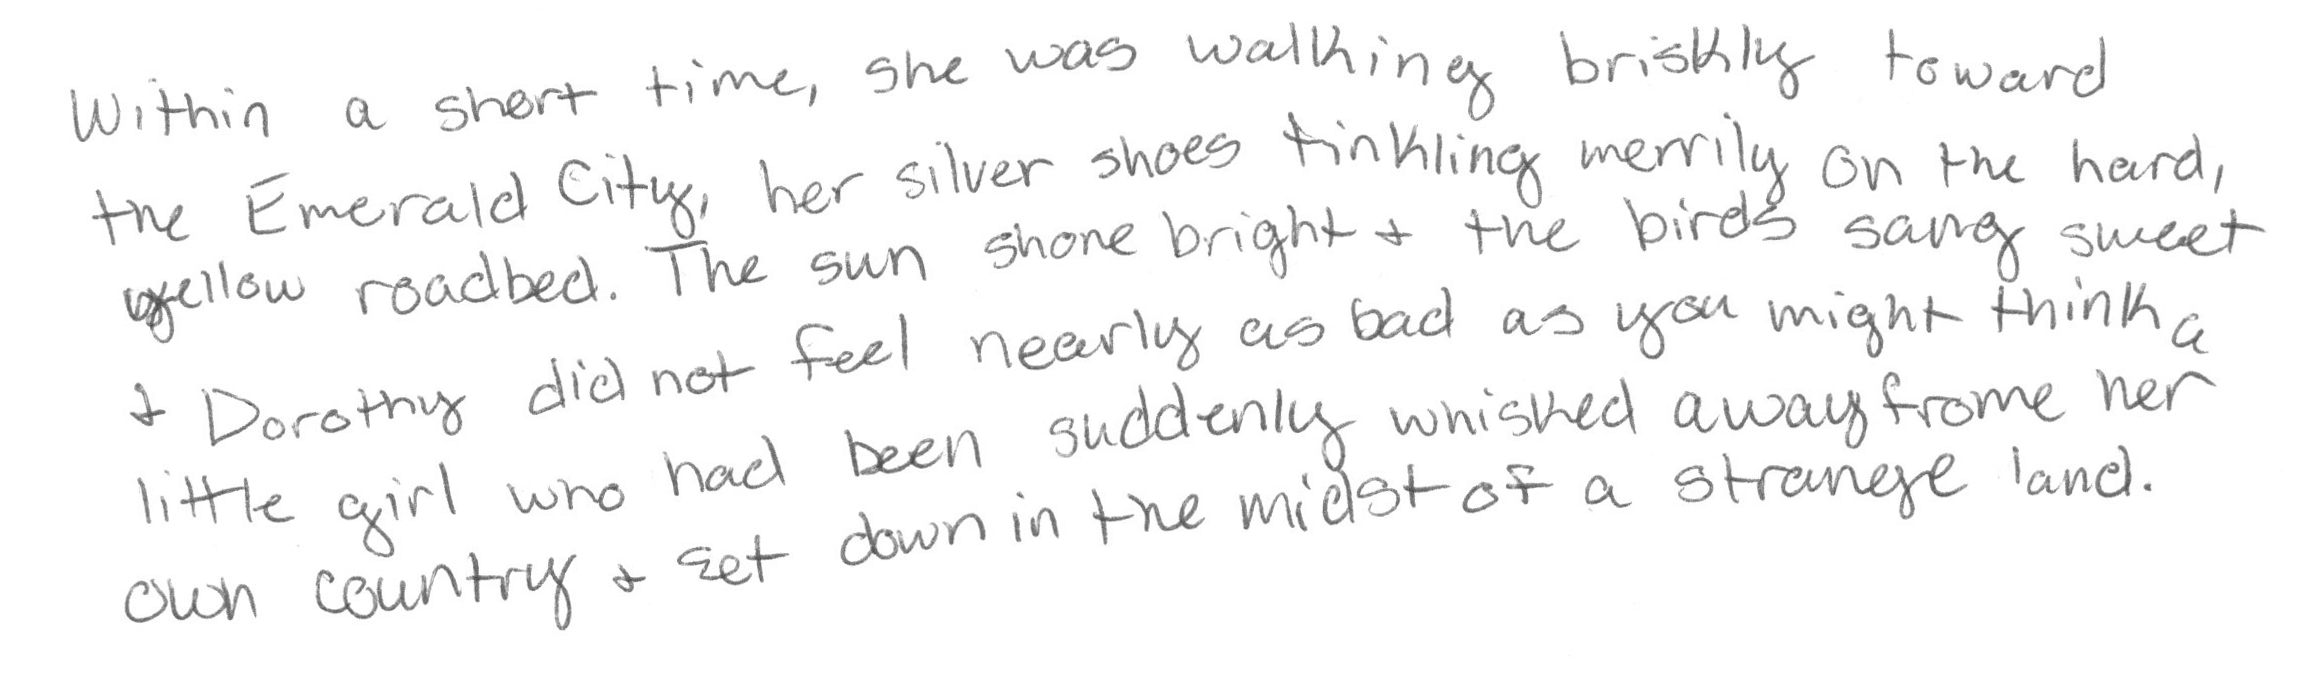 Within a short time, she was walking briskly toward
the Emerald City, her silver shoes tinkling merrily on the hard,
yellow roadbed. The sun shone bright & the birds sang sweet
& Dorothy did not feel nearly as bad as you might think a
little girl who had been suddenly whisked away frome her
own country & set down in the midst of a strange land.